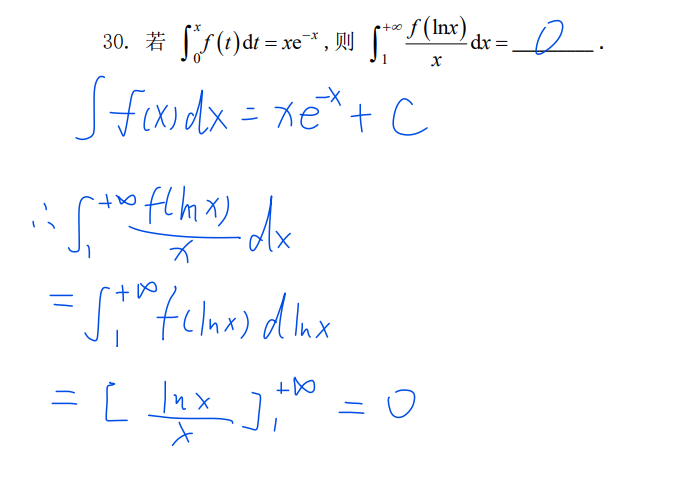 30. 若 ∫₀ˣ f(t)dt = xe⁻ˣ , 则 ∫₁⁺∞ f(lnx)/x dx = 0 .
∫ f(x)dx = xe⁻ˣ + C
∴ ∫₁⁺∞ f(lnx)/x dx
= ∫₁⁺∞ f(lnx) d lnx
= [ lnx/x ]₁⁺∞ = 0